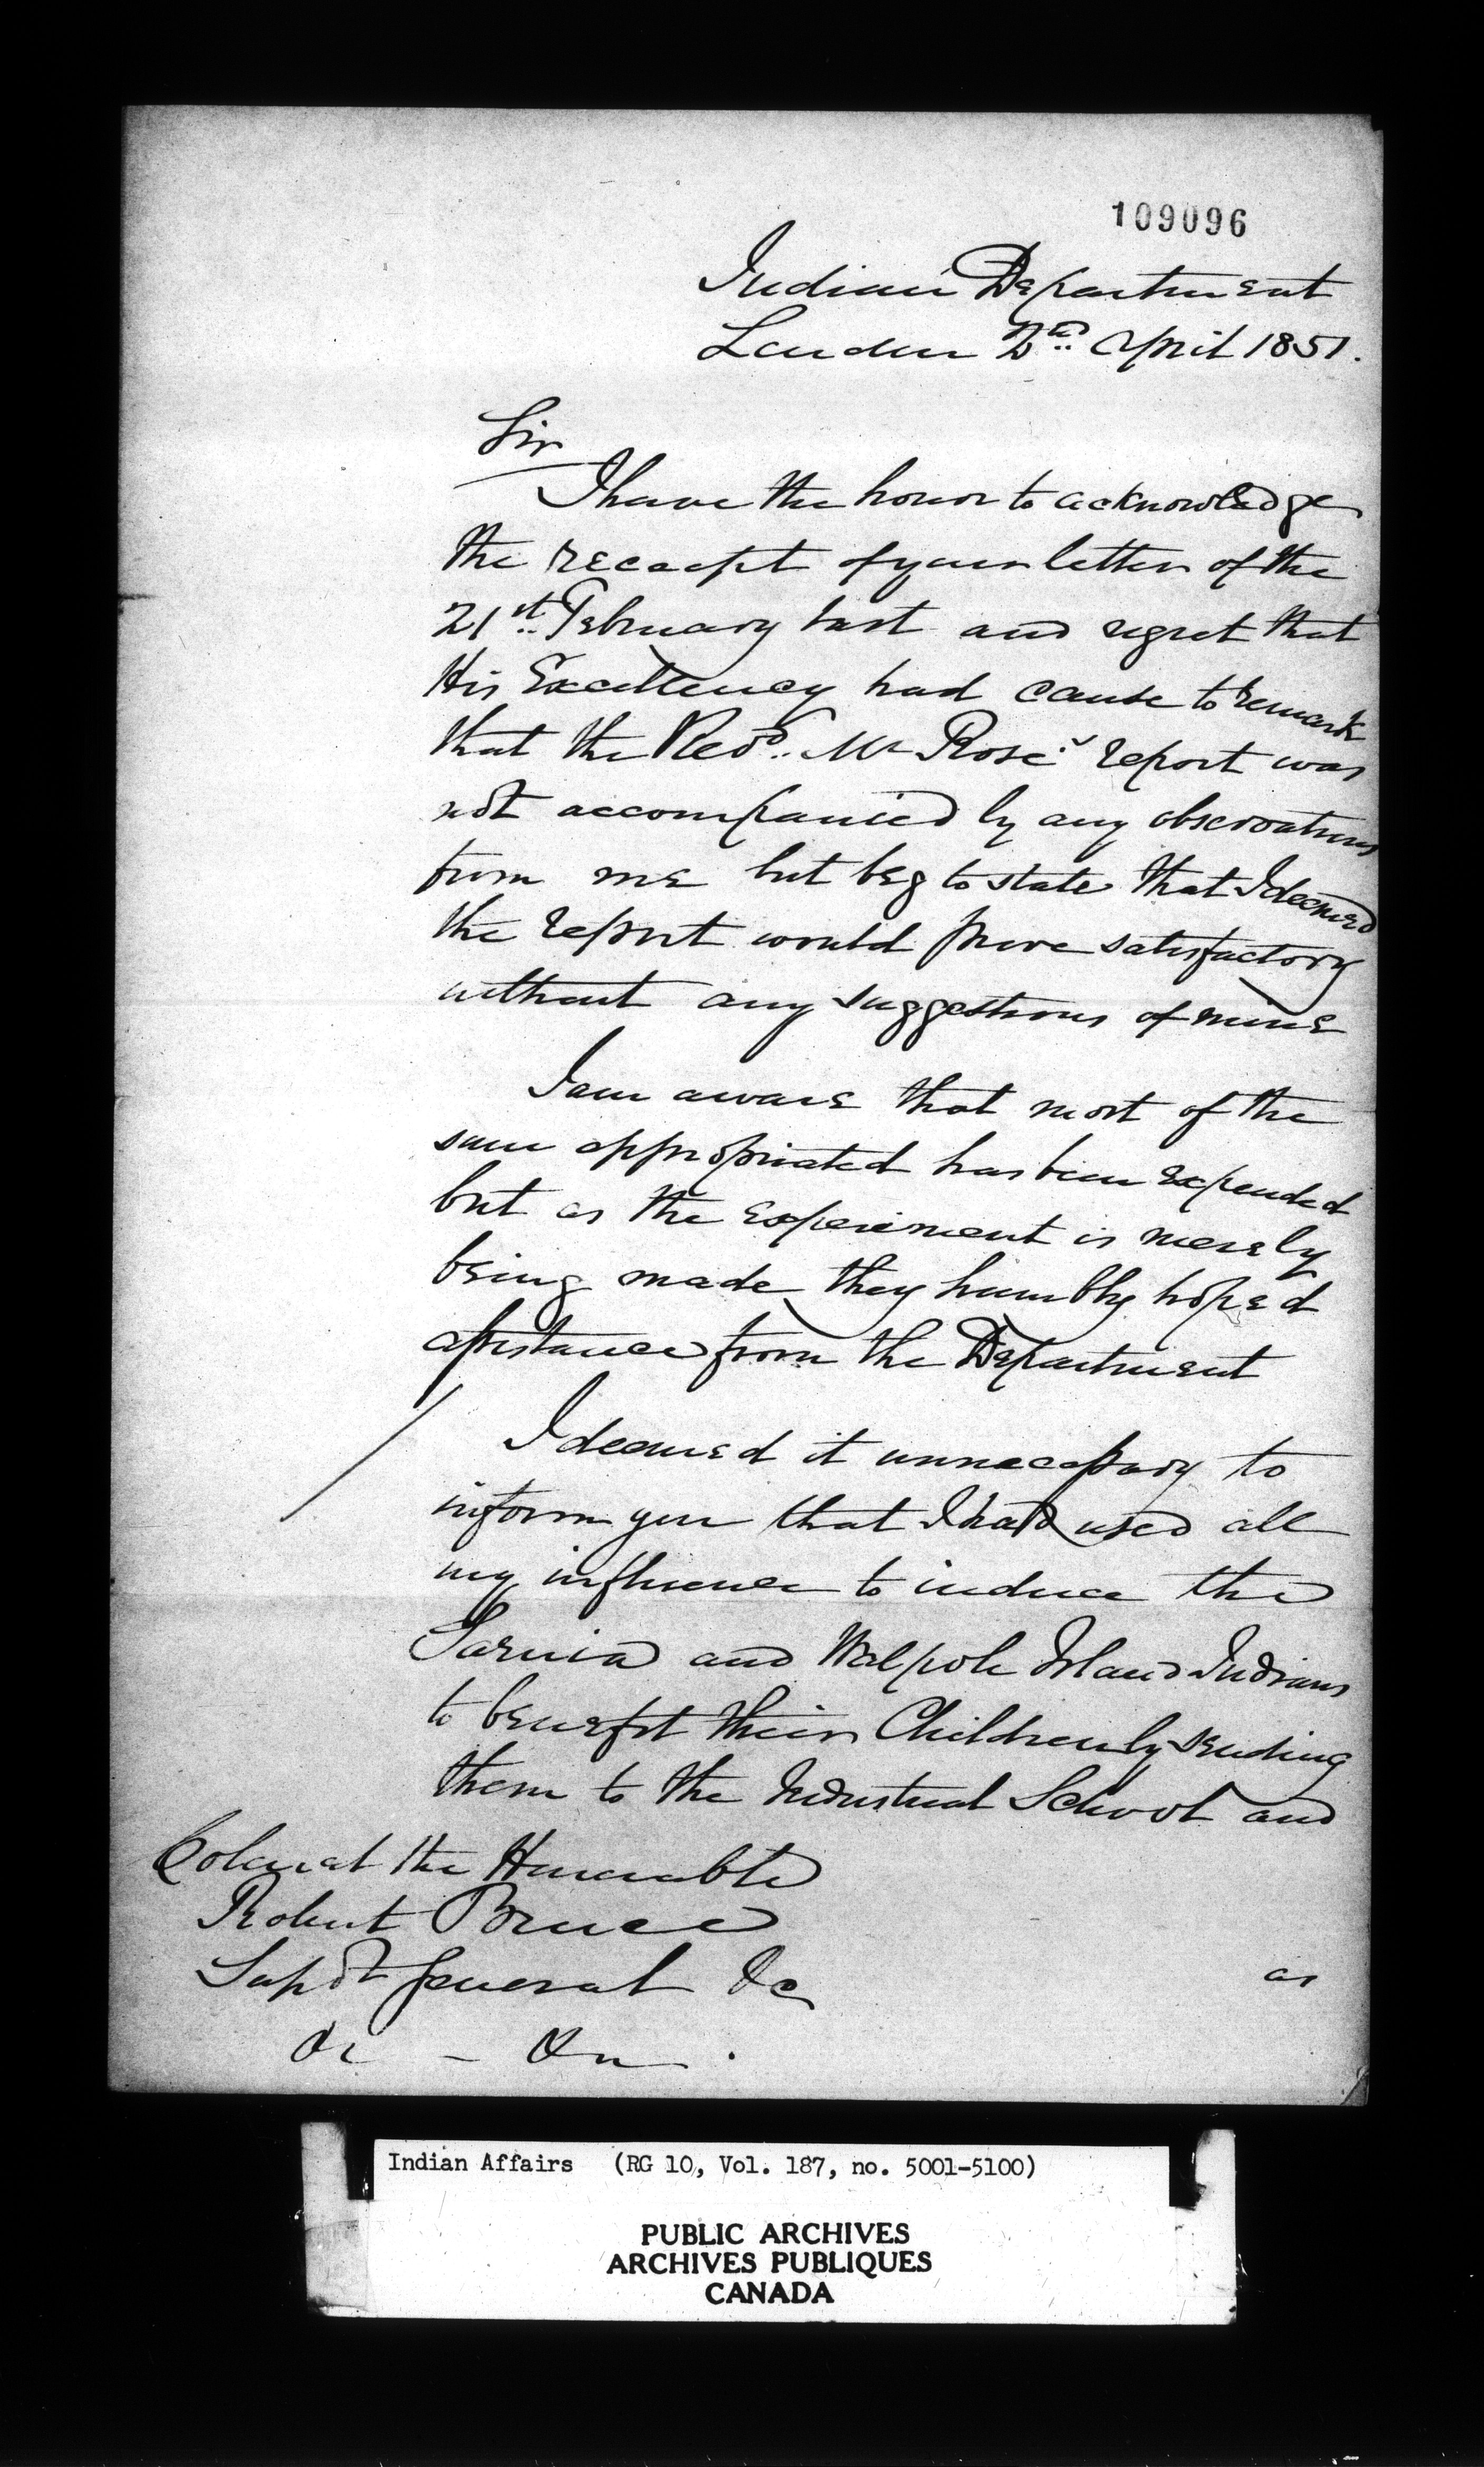 109096
Indian Department
London 2nd April 1851.
Sir
I have the honor to acknowledge
the receipt of your letter of the
21st February last and regret that
His Excellency had cause to remark
that the Revd. Mr Rose's report was
not accompanied by any observations
from me but beg to state that I deemed
the report would prove satisfactory
without any suggestions of mine
I am aware that most of the
sum appropriated has been expended
but as the experiment is merely
being made they humbly hoped
assistance from the Department
I deemed it unnecessary to
inform you that I had used all
my influence to induce the
Sarnia and Walpole Island Indians
to benefit their Children by sending
them to the Industrial School and
Colonel the Honorable
Robert Bruce
Supdt General &c
&c – &c .
as
Indian Affairs (RG 10, Vol. 187, no. 5001-5100)
PUBLIC ARCHIVES
ARCHIVES PUBLIQUES
CANADA